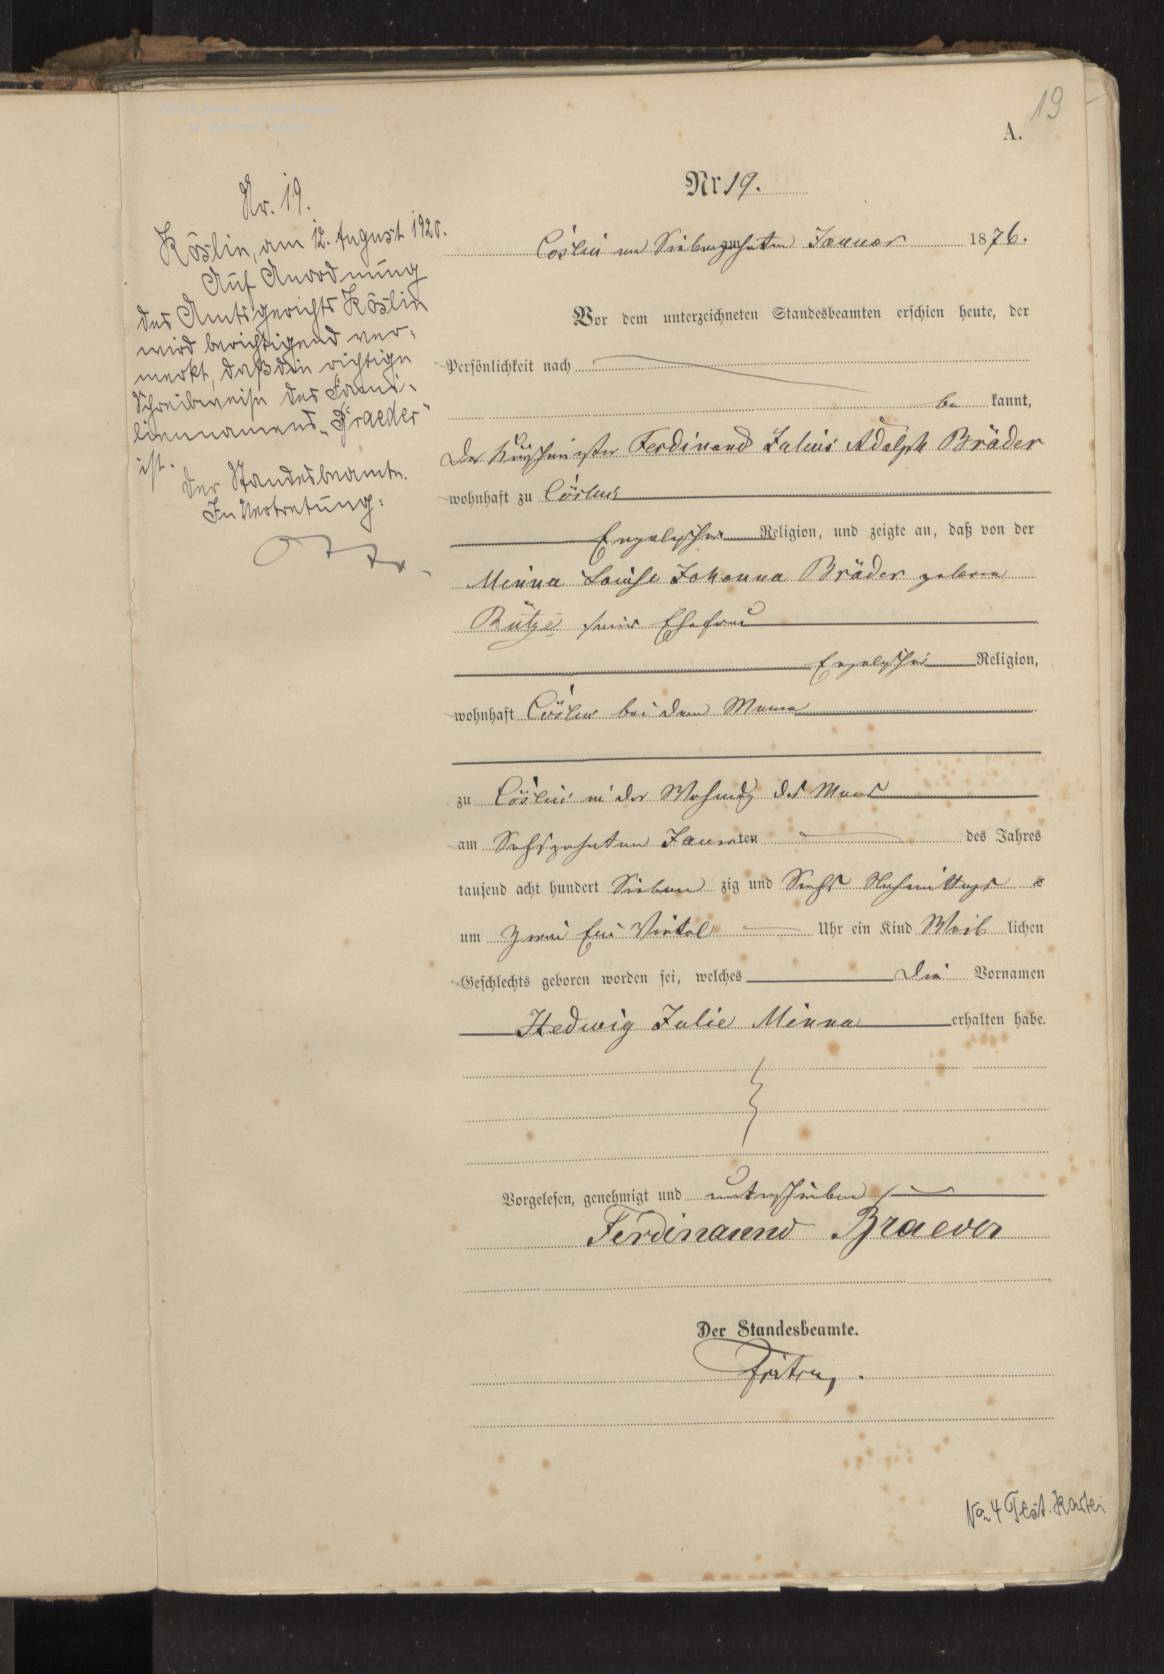 19
A.
Nr. 19.
Cöslin am Siebenzehnten Januar 1876.
Vor dem unterzeichneten Standesbeamten erschien heute, der
Persönlichkeit nach
be kannt,
der Ferdinand Julius Adolph Bräder
wohnhaft zu Cöslin
Evangelischer Religion, und zeigte an, daß von der
Minna Louise Johanna Bräder geborne
Rütze seiner Ehefrau
Evangelischer Religion,
wohnhaft Cöslin bei dem Manne
zu Cöslin in der Wohnung des Mannes
am Sechszehnten Januar ten des Jahres
tausend acht hundert Sieben zig und Sechs Nachmittags
um Zwei Ein Viertel Uhr ein Kind Weib lichen
Geschlechts geboren worden sei, welches die Vornamen
Hedwig Julie Minna erhalten habe.
Vorgelesen, genehmigt und unterschrieben
Ferdinannd Braeder
Der Standesbeamte.
Nr. 19.
Köslin, am 12. August 1920.
Auf Anordnung
des Amtsgerichts Köslin
wird berichtigend ver-
merkt, daß die richtige
Schreibweise des Fami-
liennamens "Braeder"
ist.
Der Standesbeamte.
In Vertretung:
No 4 Test. Kartei